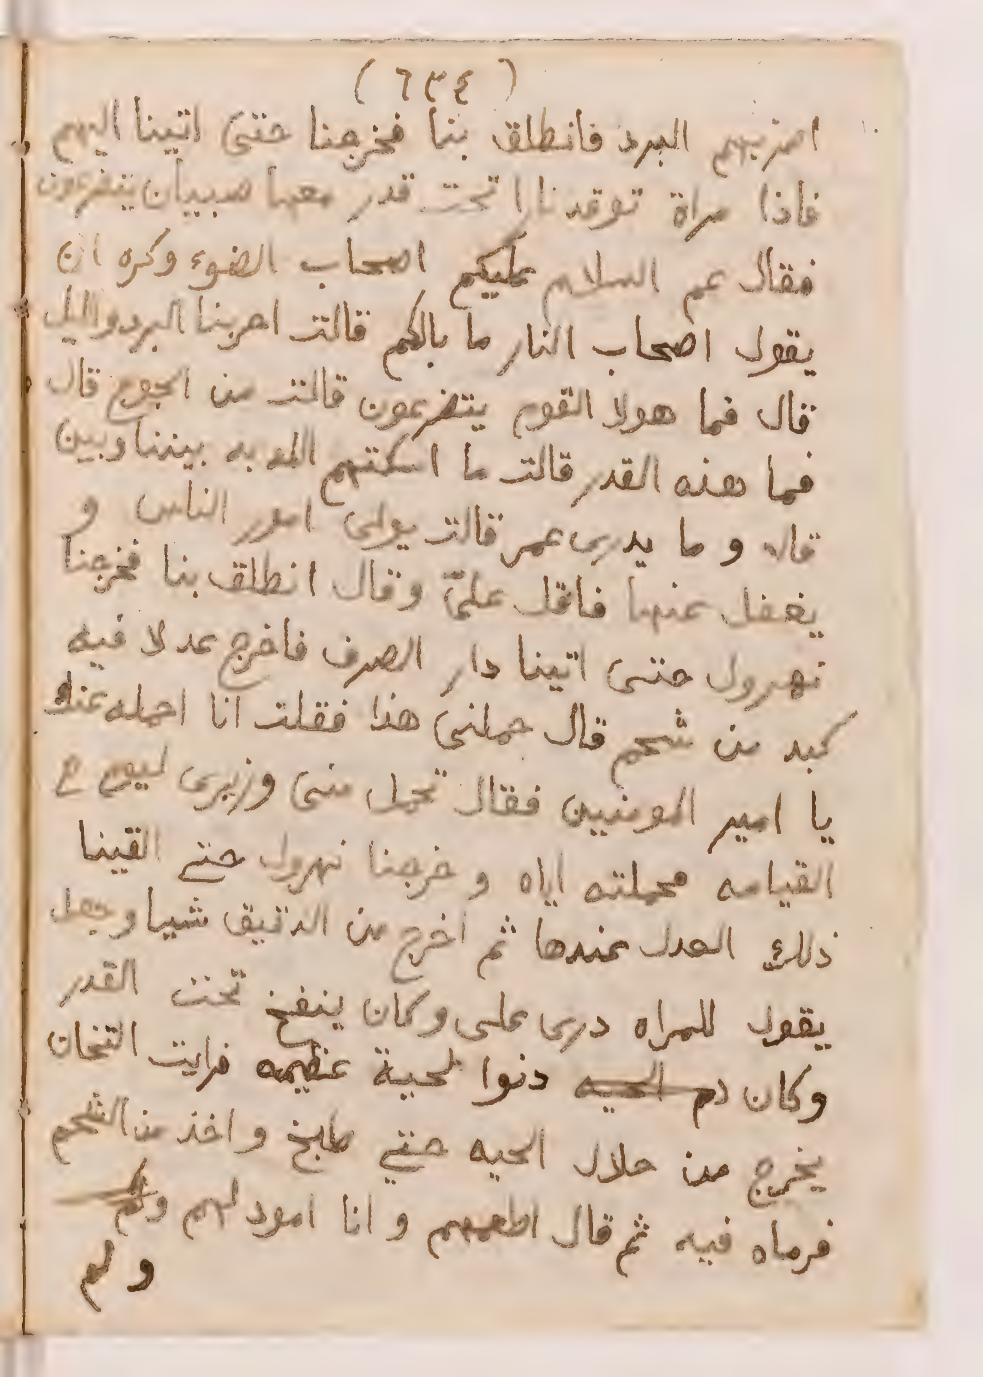 (٦٣٤)
اضر بهم البرد فانطلق بنا فخرجنا حتى اتينا اليهم
فاذا مراة توقد نارا تحت قدر معها صبيان يتضرعون
فقال عم السلام عليكم اصحاب الضوء وكره ان
يقول اصحاب النار ما بالكم قالت اضربنا البرد والليل
قال فما هولا القوم يتضرعون قالت من الجوع قال
فما هذه القدر قالت ما اسكتهم به بيننا وبين
قال و ما يدرى عمر قالت يولى امور الناس و
يغفل عنها فاقبل علىّ وقال انطلق بنا فخرجنا
نهرول حتى اتينا دار الصرف فاخرج عدلا فيه
كبد من شحم قال حملنى هذا فقلت انا احمله عنك
يا امير المومنين فقال تحمل منى وزيرى ليوم
القيامه فحملته اياه و خرجنا نهرول حتى القينا
ذلك العدل عندها ثم اخرج من الدقيق شيا وجعل
يقول للمراه درى على وكان ينفخ تحت القدر
وكان دم الحيه دنوا لحية عظيمه فرايت التخان
يخرج من خلال الحيه حتى طبخ واخذ من الشحم
فرماه فيه ثم قال اطعمهم و انا امود لهم ولم
ولم